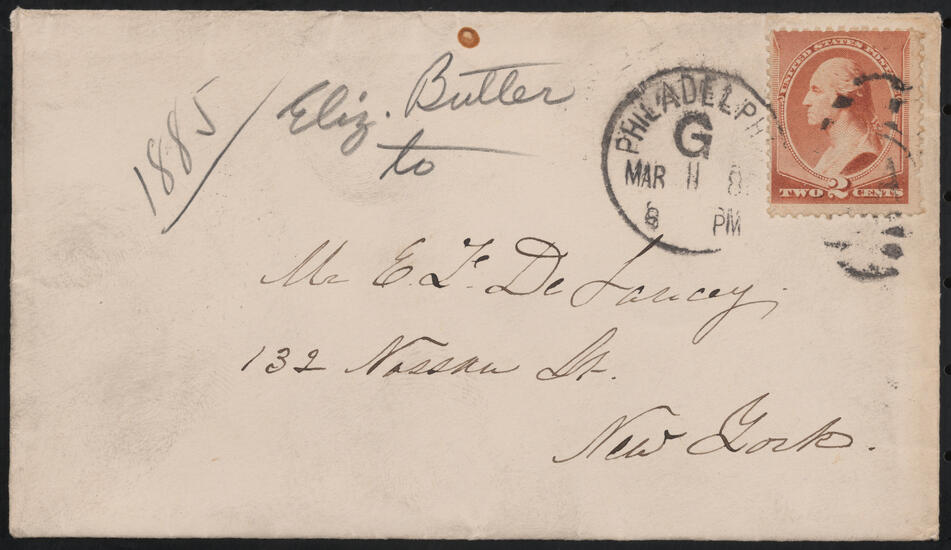 1885/
Eliz. Butler
to
PHILADELPH
G
MAR 11 8
8 PM
UNITED STATES POST
TWO 2 CENTS
Mr E. F. De Lancey.
132 Nassau St.
New York.